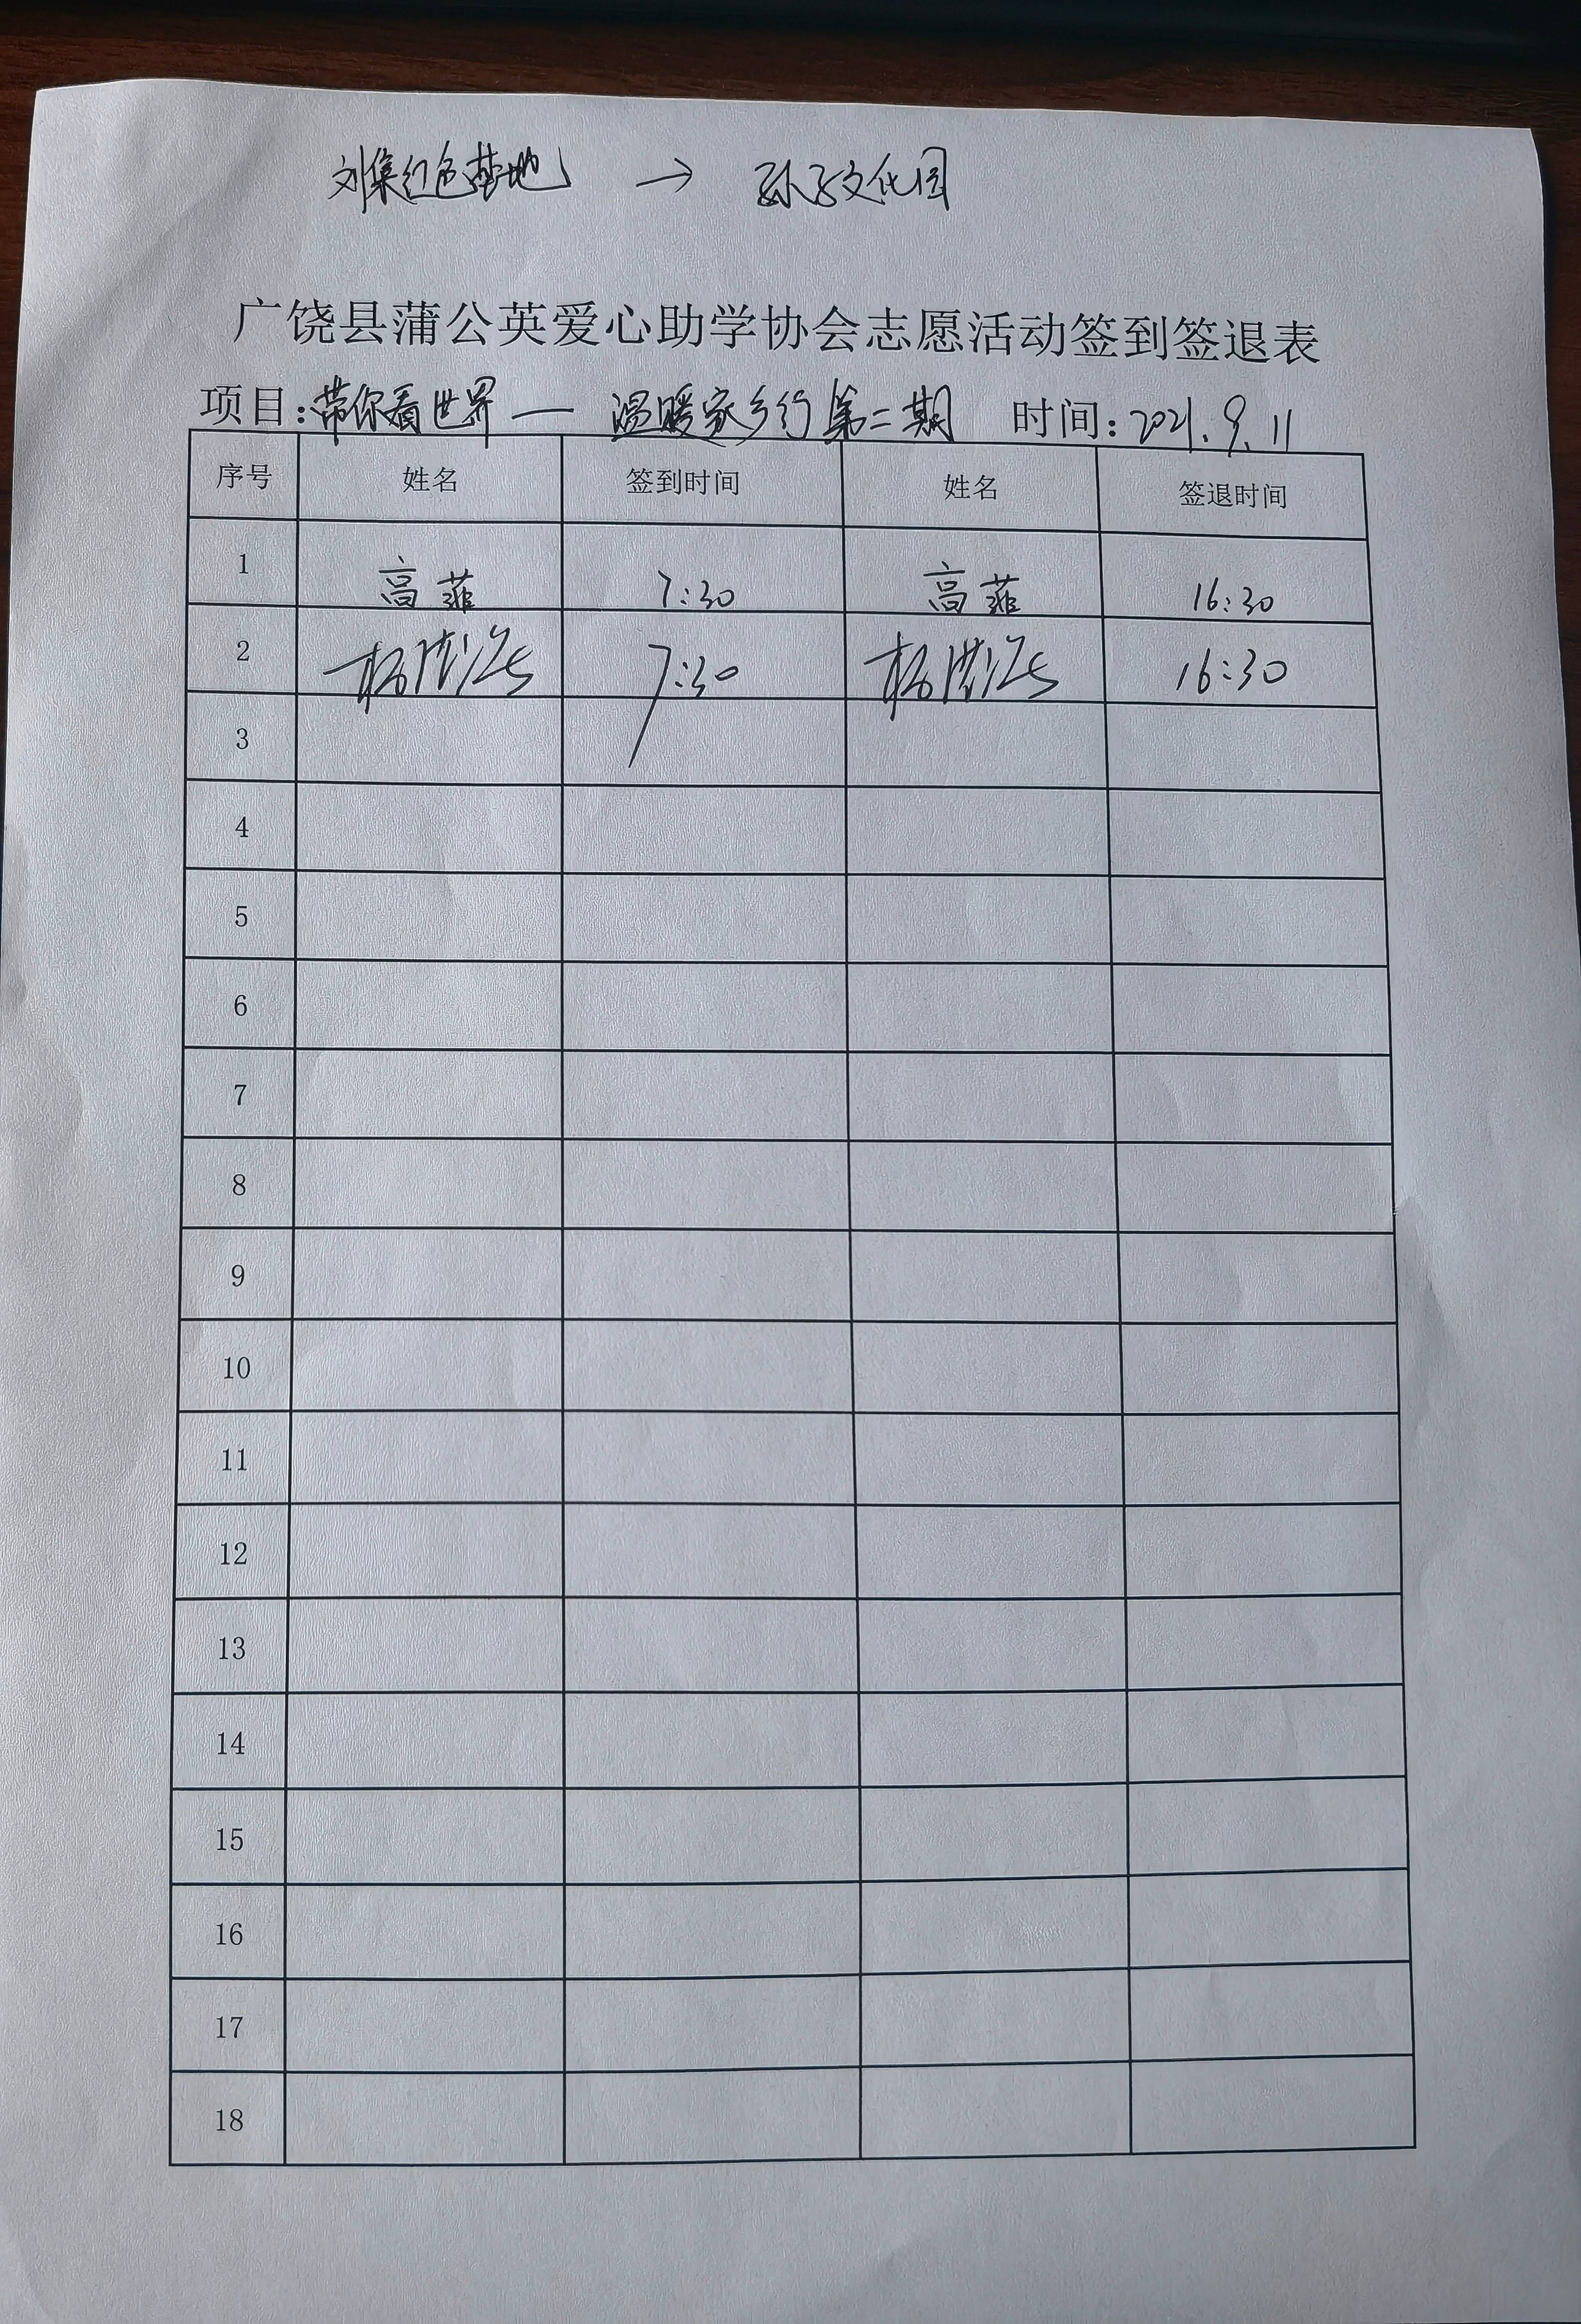 刘集红色基地 → 孙子文化园
广饶县蒲公英爱心助学协会志愿活动签到签退表
项目:带你看世界 — 温暖家乡行第二期 时间:2021.9.11
序号 姓名 签到时间 姓名 签退时间
1 高菲 7:30 高菲 16:30
2 7:30 16:30
3
4
5
6
7
8
9
10
11
12
13
14
15
16
17
18